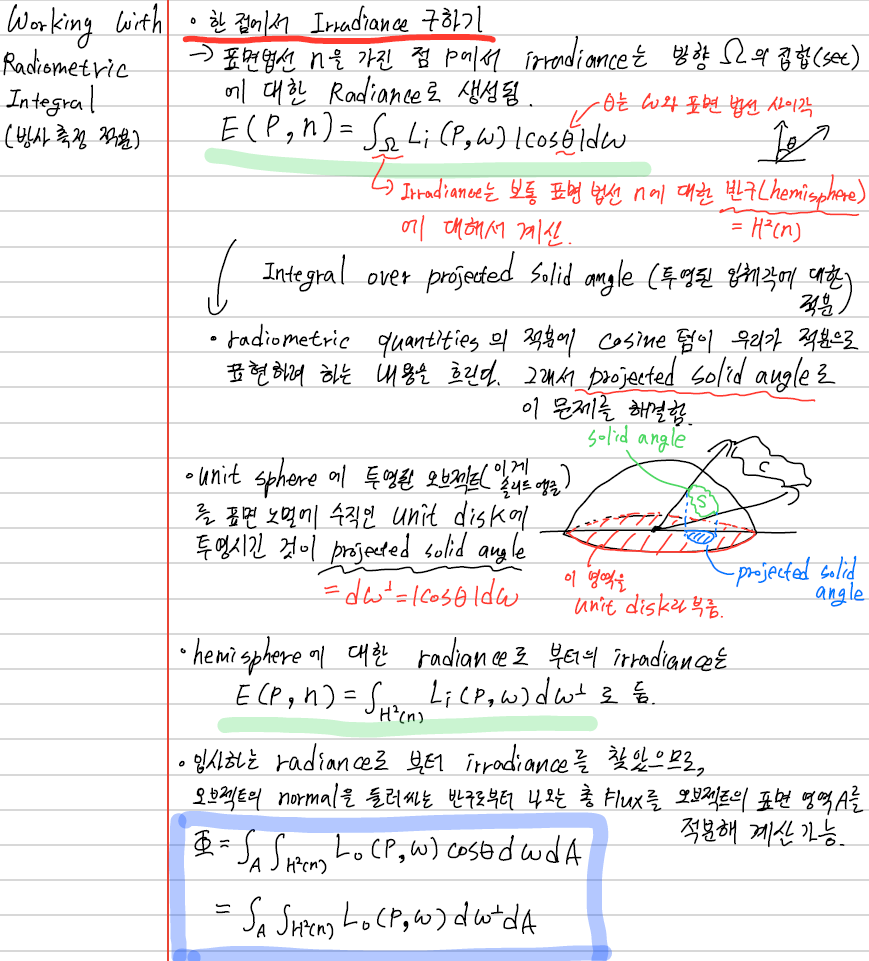 Working With
Radiometric
Integral
(방사 측정 적분)
• 한 점에서 Irradiance 구하기
→ 표면법선 n을 가진 점 P에서 irradiance는 방향 Ω의 집합(set)
에 대한 Radiance로 생성됨.
θ는 ω와 표면 법선 사이각
E(P,n) = ∫Ω Li(P,ω) |cosθ|dω
θ
Irradiance는 보통 표면 법선 n에 대한 반구(hemisphere)
에 대해서 계산.
= H²(n)
Integral over projected solid angle (투영된 입체각에 대한
적분)
• radiometric quantities의 적분에 cosine 텀이 우리가 적분으로
표현하려 하는 내용을 흐린다. 그래서 projected solid angle로
이 문제를 해결함.
solid angle
C
S
• unit sphere에 투영된 오브젝트(이게
솔리드 앵글)
를 표면 노멀에 수직인 unit disk에
투영시킨 것이 projected solid angle
= dω⊥ = |cosθ|dω
이 영역을
unit disk라 부름.
projected solid
angle
• hemisphere에 대한 radiance로 부터의 irradiance는
E(P,n) = ∫H²(n) Li(P,ω) dω⊥ 로 둠.
• 입사하는 radiance로 부터 irradiance를 찾았으므로,
오브젝트의 normal을 둘러싸는 반구로부터 나오는 총 Flux를 오브젝트의 표면 영역 A를
적분해 계산 가능.
Φ = ∫A ∫H²(n) Lo(P,ω) cosθ dω dA
= ∫A ∫H²(n) Lo(P,ω) dω⊥ dA